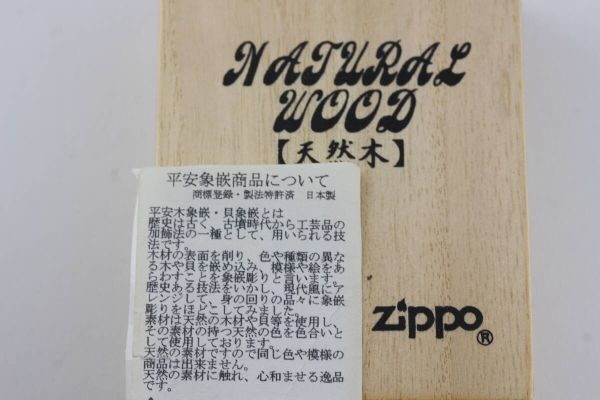 NATURAL
WOOD
【天然木】
平安象嵌商品について
商標登録・製法特許済 日本製
平安木象嵌・貝象嵌とは
歴史は古く、古墳時代から工芸品の
加飾法の一種として、用いられる技
法です。
木材の表面を削り、色や種類の異な
る木や貝を嵌め込み、模様や絵をあ
らわすことを象嵌彫りと言います。
歴史ある技法をいかし、現代風にア
レンジして、身の回りの品々に象嵌
彫りをほどこしてみました。
素材は天然の木材や貝等を使用し、
その素材の持つ天然の色を色合いと
して使用しております。
天然の素材ですので同じ色や模様の
商品は出来ません。
天然の素材に触れ、心和ませる逸品
です。
zippo®